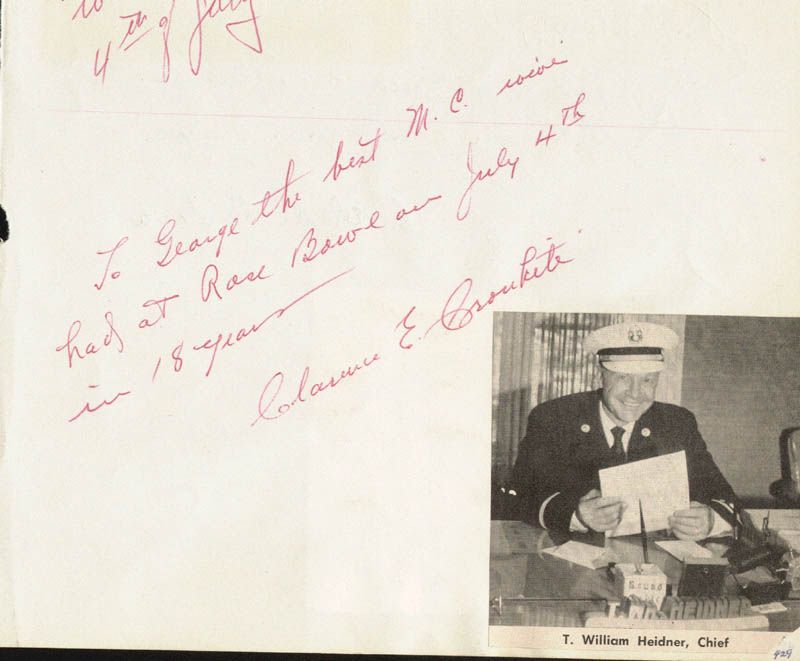 to
4th of July
To George the best M.C. we've
had at Rose Bowl on July 4th
in 18 years
Clarence E. Cronkite
T. W. HEIDNER
T. William Heidner, Chief
429